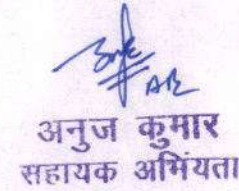 AE
अनुज कुमार
सहायक अभियंता